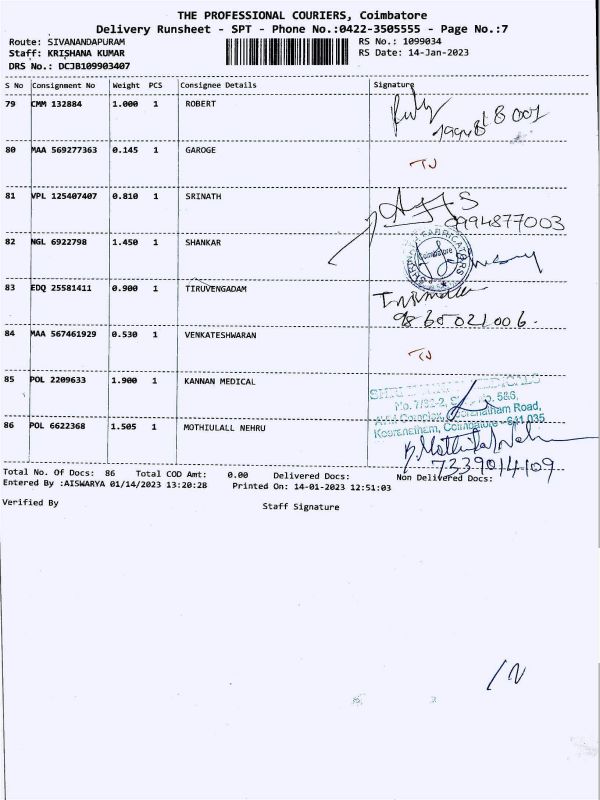 THE PROFESSIONAL COURIERS, Coimbatore
Delivery Runsheet - SPT - Phone No.:0422-3505555 - Page No.:7
Route: SIVANANDAPURAM RS No.: 1099034
Staff: KRISHANA KUMAR RS Date: 14-Jan-2023
DRS No.: DCJB109903407
S No Consignment No Weight PCS Consignee Details Signature
79 CMM 132884 1.000 1 ROBERT
80 MAA 569277363 0.145 1 GAROGE
TJ
81 VPL 125407407 0.810 1 SRINATH
0994877003
82 NGL 6922798 1.450 1 SHANKAR
83 EDQ 25581411 0.900 1 TIRUVENGADAM
9865021006.
84 MAA 567461929 0.530 1 VENKATESHWARAN
TJ
85 POL 2209633 1.900 1 KANNAN MEDICAL
86 POL 6622368 1.505 1 MOTHIULALL NEHRU
7339014109
Total No. Of Docs: 86 Total COD Amt: 0.00 Delivered Docs: Non Delivered Docs:
Entered By :AISWARYA 01/14/2023 13:20:28 Printed On: 14-01-2023 12:51:03
Verified By Staff Signature